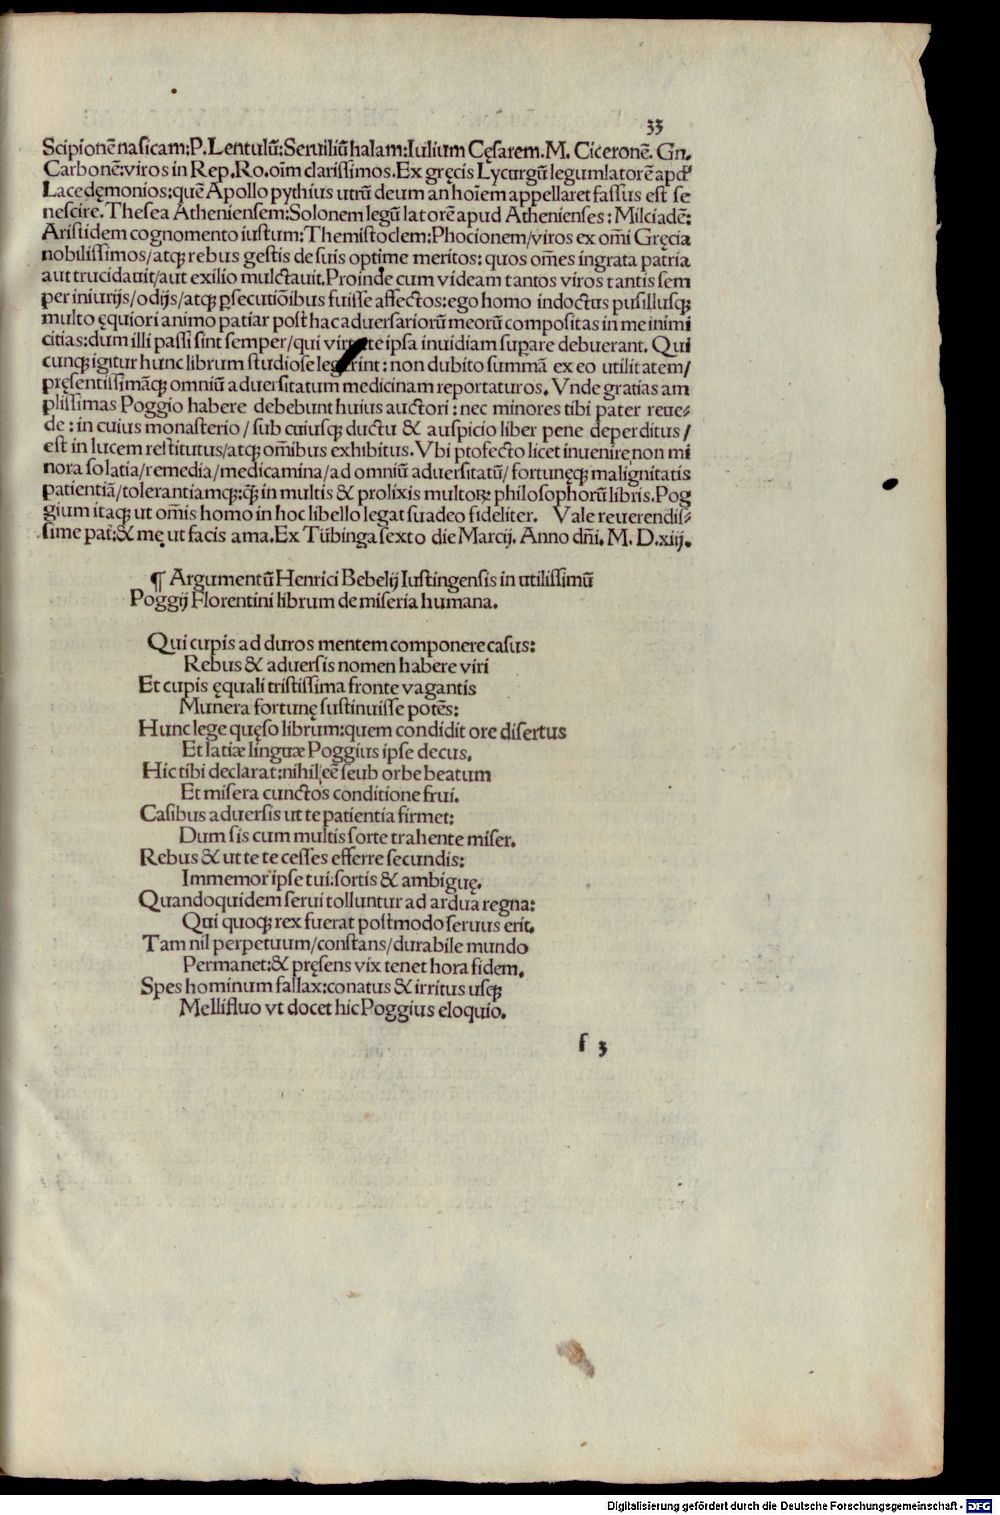 33
Scipionē nasicam:P.Lentulū:Seruiliū halam:Iulium Cęsarem.M. Ciceronē. Gn.
Carbonē:viros in Rep.Ro.oīm clarissimos.Ex gręcis Lycurgū legumlatorē apd̄
Lacedęmonios:quē Apollo pythius utrū deum an hoīem appellaret fassus est se
nescire.Thesea Atheniensem:Solonem legū latorē apud Athenienses:Milciadē:
Aristidem cognomento iustum:Themistoclem:Phocionem/viros ex om̄i Gręcia
nobilissimos/atqꝫ rebus gestis de suis optime meritos:quos om̄es ingrata patria
aut trucidauit/aut exilio mulctauit.Proinde cum videam tantos viros tantis sem
per iniurijs/odijs/atqꝫ ꝑsecutiōibus fuisse affectos:ego homo indoctus pusillusqꝫ
multo ęquiori animo patiar posthac aduersariorū meorū compositas in me inimi
citias:dum illi passi sint semper/qui te ipsa inuidiam suꝑare debuerant. Qui
cunqꝫ igitur hunc librum studiose :non dubito summā ex eo utilitatem/
pręsentissimāqꝫ omniū aduersitatum medicinam reportaturos.Vnde gratias am
plissimas Poggio habere debebunt huius auctori:nec minores tibi pater reue⸗
de:in cuius monasterio/sub cuiusqꝫ ductu & auspicio liber pene deperditus/
est in lucem restitutus/atqꝫ om̄ibus exhibitus.Vbi ꝓfecto licet inuenire non mi
nora solatia/remedia/medicamina/ad omniū aduersitatū/fortunęqꝫ malignitatis
patientiā/tolerantiamqꝫ:q̄ꝫ in multis & prolixis multoꝝ philosophorū libris.Pog
gium itaqꝫ ut om̄is homo in hoc libello legat suadeo fideliter. Vale reuerendis⸗
sime pat̄:& mę ut facis ama.Ex Tübinga sexto die Marcij. Anno dn̄i. M. D.xiij.
¶ Argumentū Henrici Bebelij Iustingensis in utilissimū
Poggij Florentini librum de miseria humana.
Qui cupis ad duros mentem componere casus:
Rebus & aduersis nomen habere viri
Et cupis ęquali tristissima fronte vagantis
Munera fortunę sustinuisse potēs:
Hunc lege quęso librum:quem condidit ore disertus
Et latiæ linguæ Poggius ipse decus.
Hic tibi declarat:nihil eē seub orbe beatum
Et misera cunctos conditione frui.
Casibus aduersis ut te patientia firmet:
Dum sis cum multis sorte trahente miser.
Rebus & ut te te cesses efferre secundis:
Immemor ipse tui:sortis & ambiguę.
Quandoquidem serui tolluntur ad ardua regna:
Qui quoqꝫ rex fuerat postmodo seruus erit.
Tam nil perpetuum/constans/durabile mundo
Permanet:& pręsens vix tenet hora fidem.
Spes hominum fallax:conatus & irritus usqꝫ
Mellifluo vt docet hic Poggius eloquio.
f 3
Digitalisierung gefördert durch die Deutsche Forschungsgemeinschaft - DFG